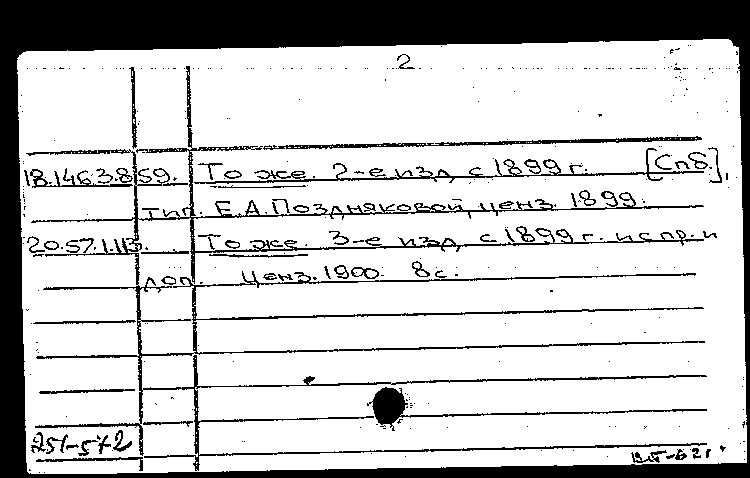 2
18.146.3.859. То же. 2-е изд. с 1899 г. [Спб.],
тип. Е.А.Поздняковой, ценз. 1899.
20.57.1.113. То же. 3-е изд. с 1899 г. испр. и
доп. Ценз. 1900. 8 с.
251-572